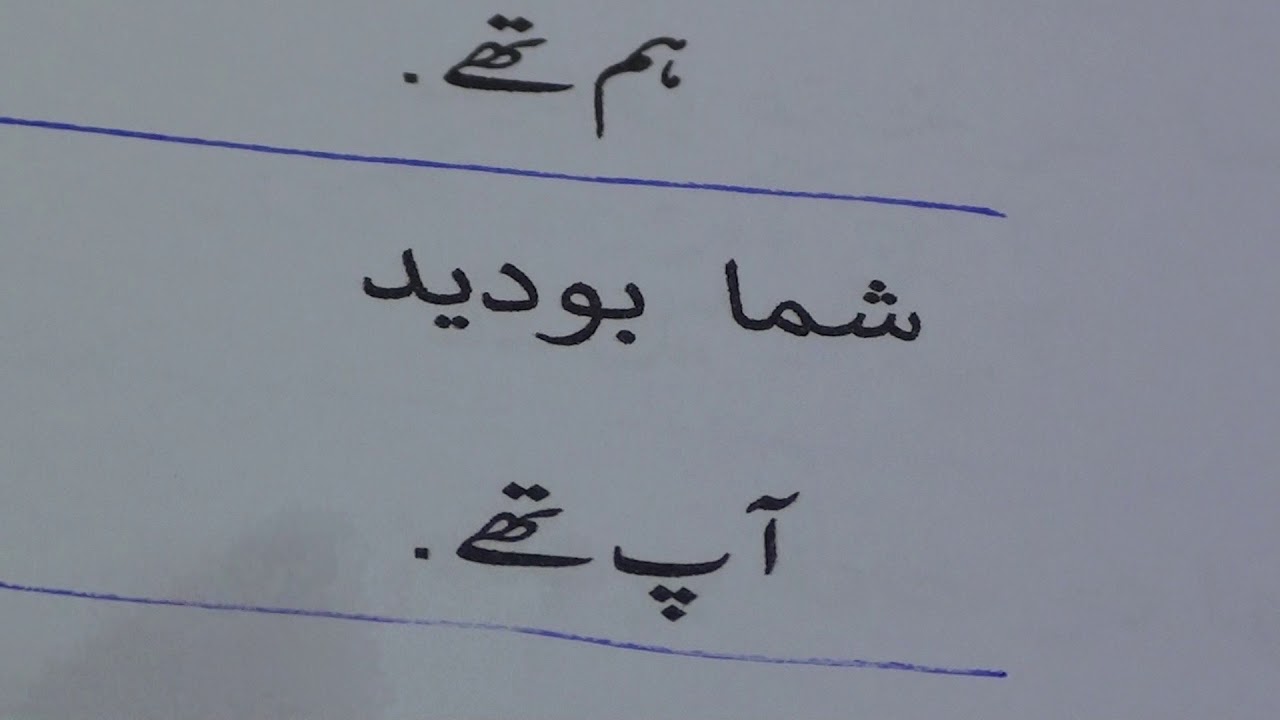 ہم تھے.
شما بودید
آپ تھے.